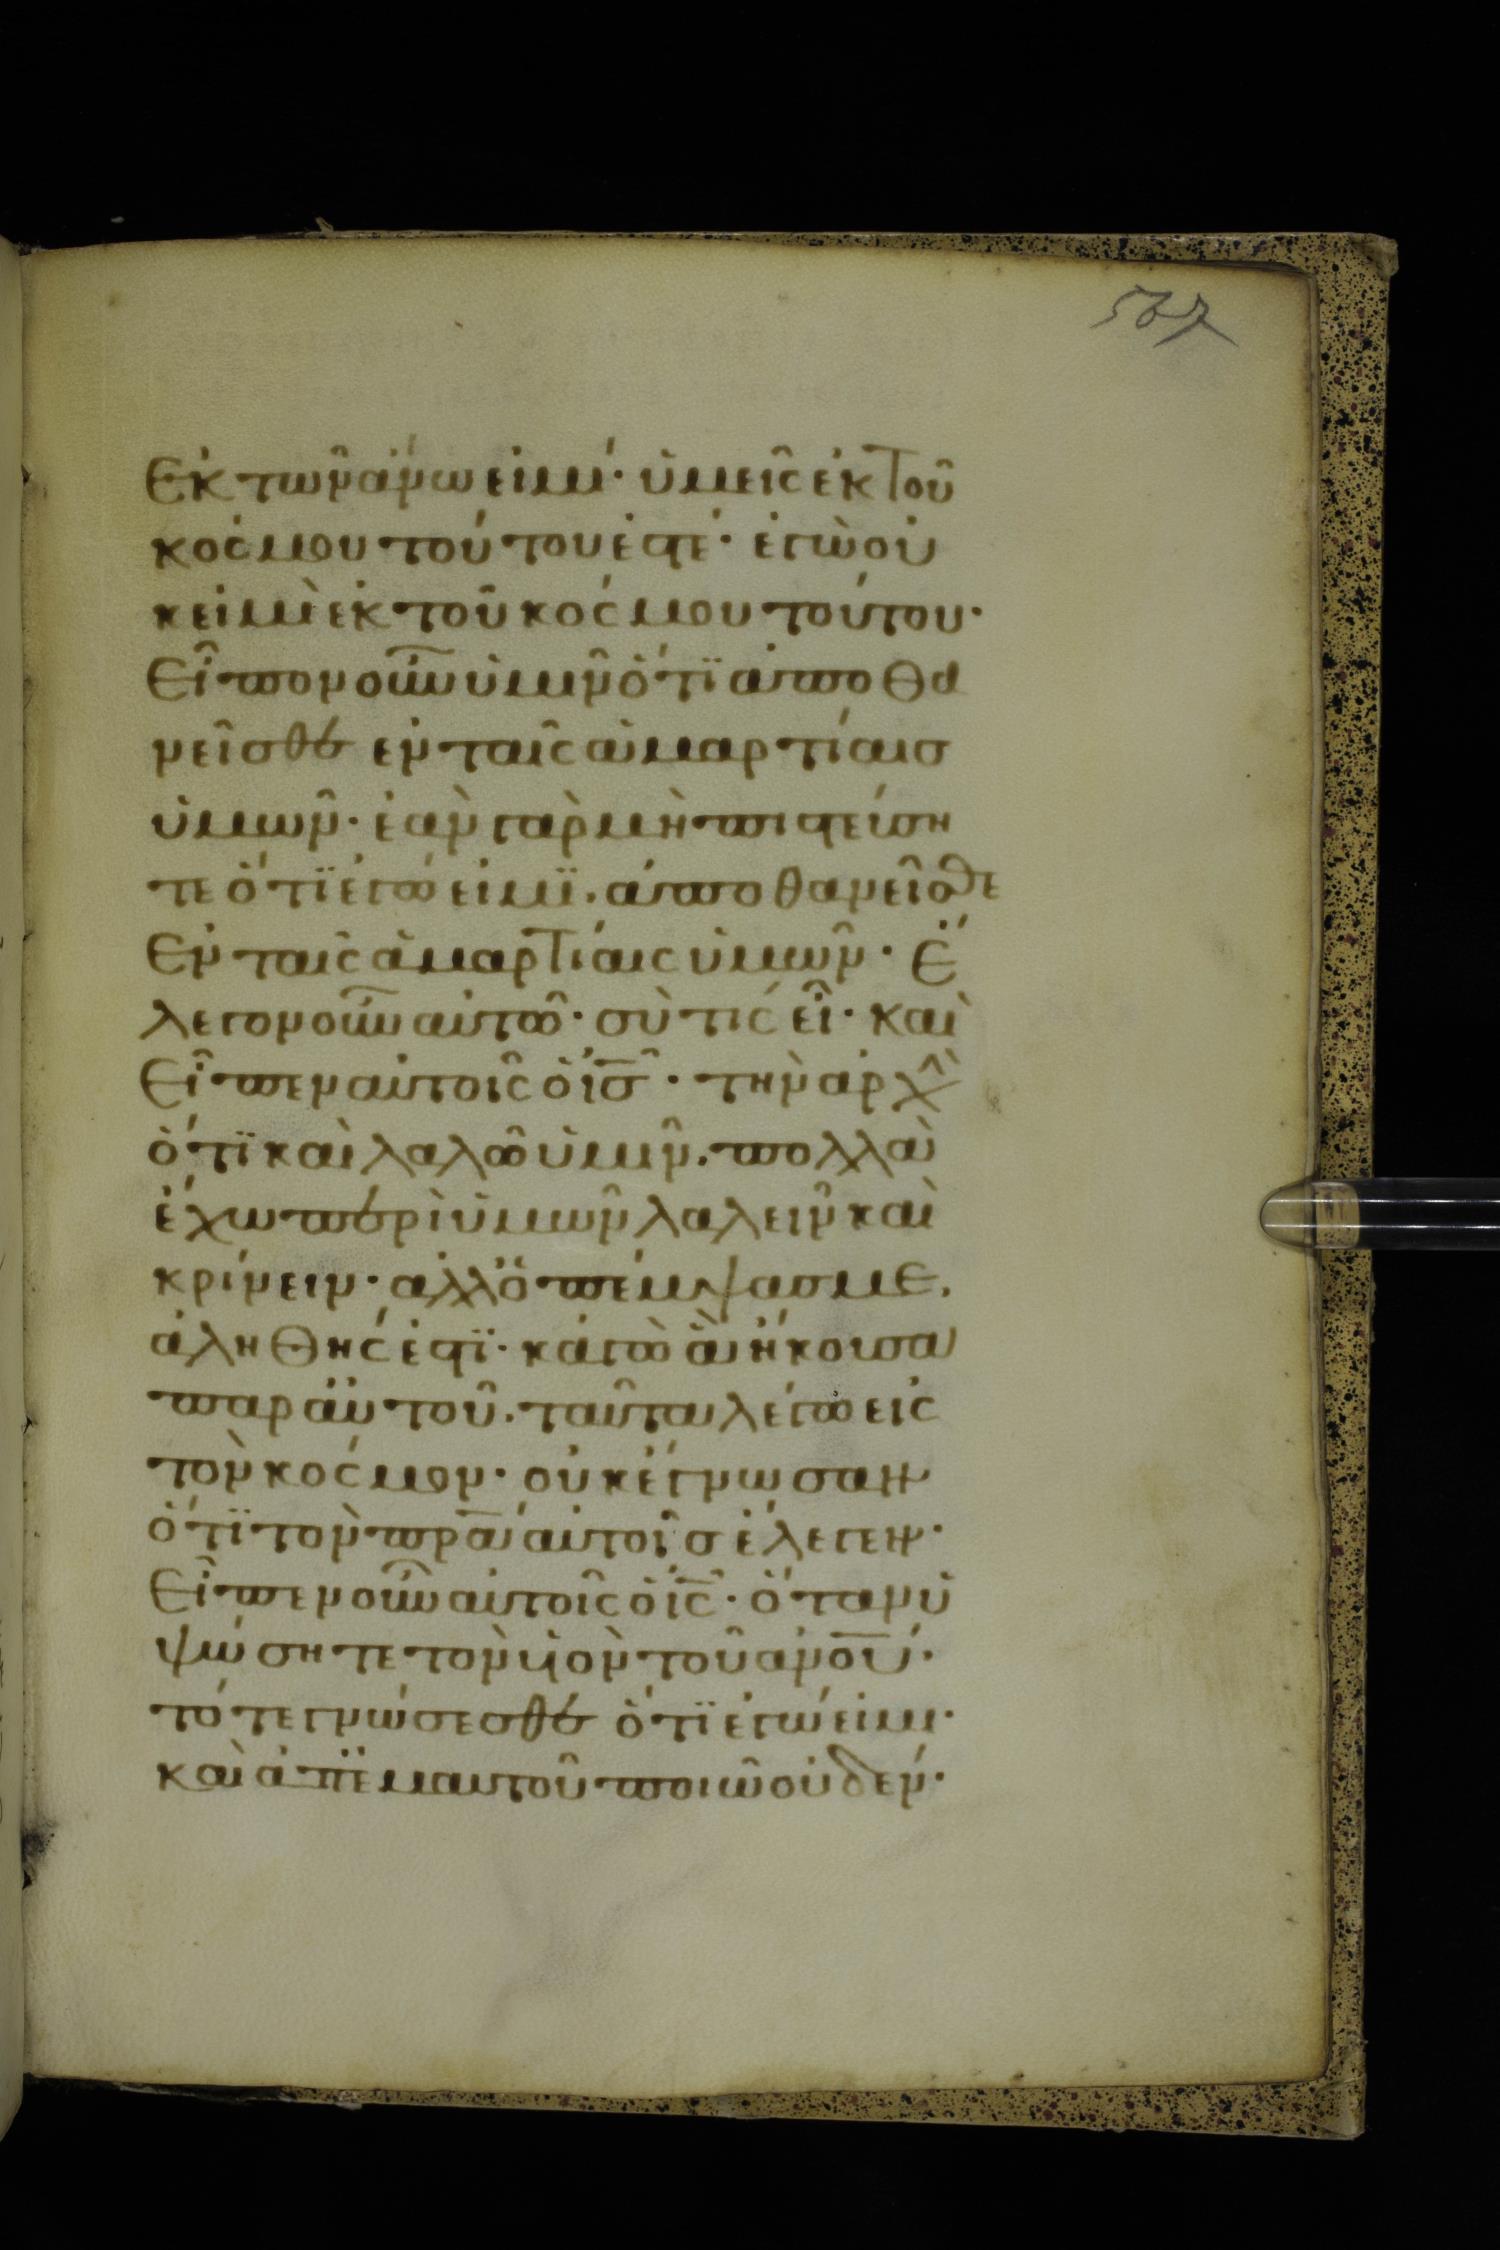 Ἐκ τῶν ἄνω εἰμί· ὑμεῖς ἐκ τοῦ
κόσμου τούτου ἐστέ· ἐγὼ οὐ
κ εἰμὶ ἐκ τοῦ κόσμου τούτου·
Εἶπον οὖν ὑμῖν ὅτϊ ἀποθα
νεῖσθε ἐν ταῖς ἁμαρτίαισ
ὑμῶν· ἐὰν γὰρ μὴ πιστεύση
τε ὅτϊ ἐγώ εἰμϊ. ἀποθανεῖσθε
Ἐν ταῖς ἁμαρτίαις ὑμῶν· Ἔ
λεγον οὖν αὐτῶ· σὺ τίς εἶ· καὶ
Εἶπεν αὐτοῖς ὁ ισ· τὴν ἀρχὴ
ὅτϊ καὶ λαλῶ ὑμῖν. πολλὰ
ἔχω περὶ ὑμῶν λαλεῖν καὶ
κρίνειν· ἀλλ ὁ πέμψασ με.
ἀληθής ἐστϊ· κἀγὼ ἃ ἤκουσα
παρ αὐτοῦ. ταῦτα λέγω εἰς
τὸν κόσμον· οὐκ ἔγνωσαν
ὅτϊ τὸν πρα αὐτοῖσ ἔλεγεν·
Εἶπεν οὖν αὐτοῖς ὁ ις· ὅταν ὑ
ψώσητε τὸν ὑὸν τοῦ ανου·
τότε γνώσεσθε ὅτϊ ἐγώ εἰμι·
καὶ ἀπ ἐμαυτοῦ ποιῶ οὐδέν·